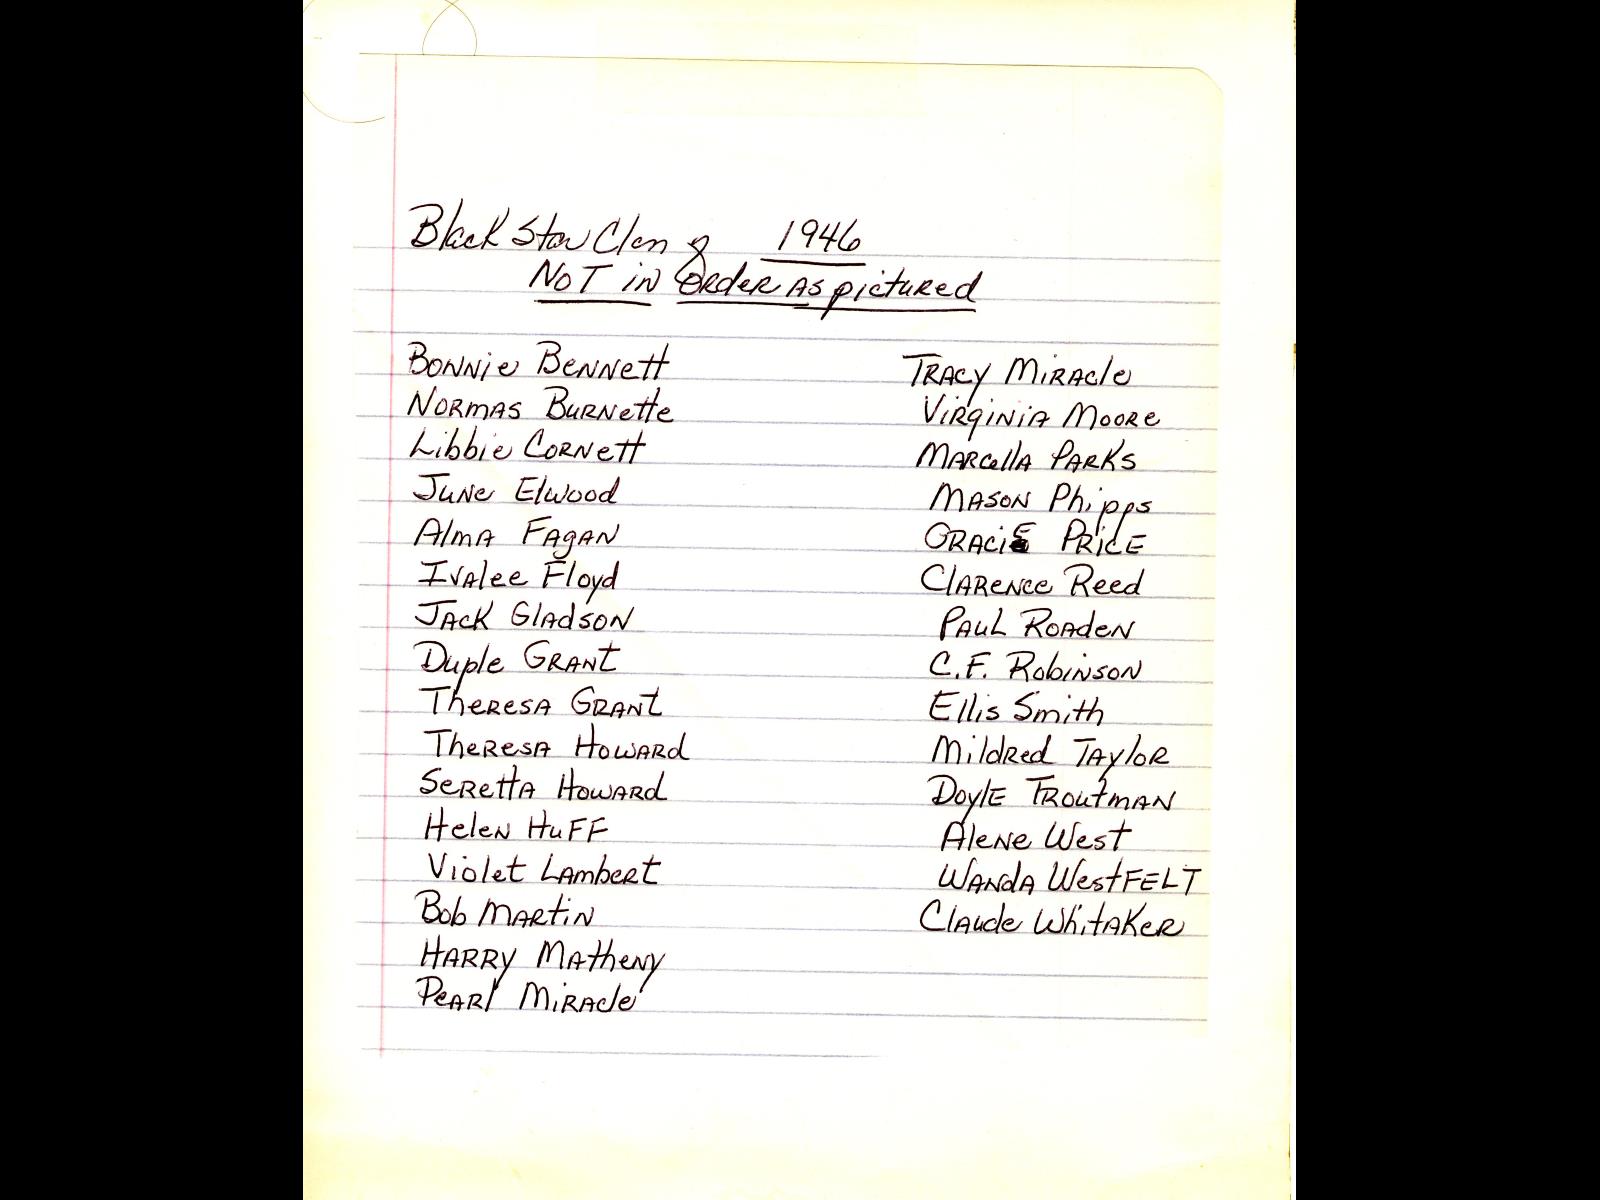 Black Star Clan of 1946
NOT in Order AS pictured
Bonnie Bennett
Normas Burnette
Libbie Cornett
June Elwood
Alma Fagan
Ivalee Floyd
Jack Gladson
Duple Grant
Theresa Grant
Theresa Howard
Seretta Howard
Helen Huff
Violet Lambert
Bob Martin
Harry Matheny
Pearl Miracle
Tracy Miracle
Virginia Moore
Marcella Parks
Mason Phipps
Gracie Price
Clarence Reed
Paul Roaden
C.F. Robinson
Ellis Smith
Mildred Taylor
Doyle Troutman
Alene West
Wanda Westfelt
Claude Whitaker